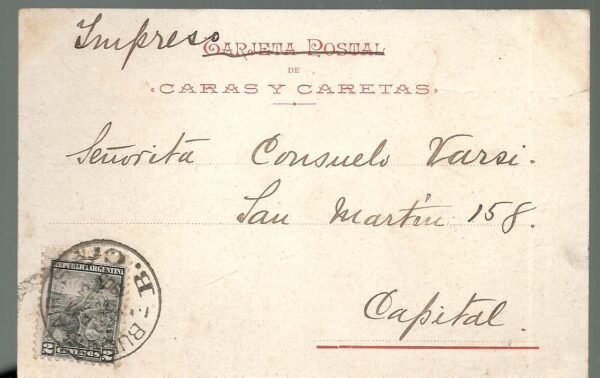 Impreso
TARJETA POSTAL
DE
«CARAS Y CARETAS»
Señorita Consuelo Varsi.
San Martín 158.
Capital.
REPUBLICA ARGENTINA
2 CENTAVOS 2